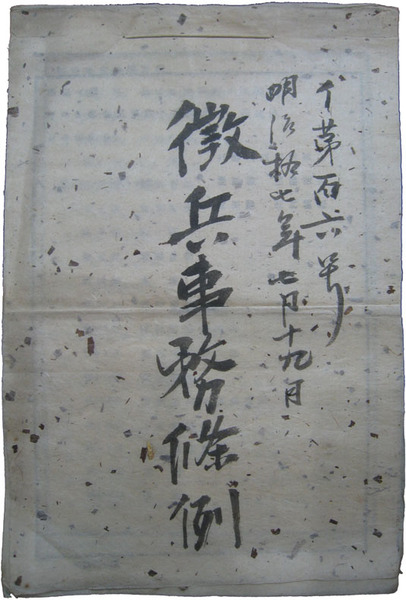 丁第百六号
明治拾七年七月十九日
徴兵事務條例